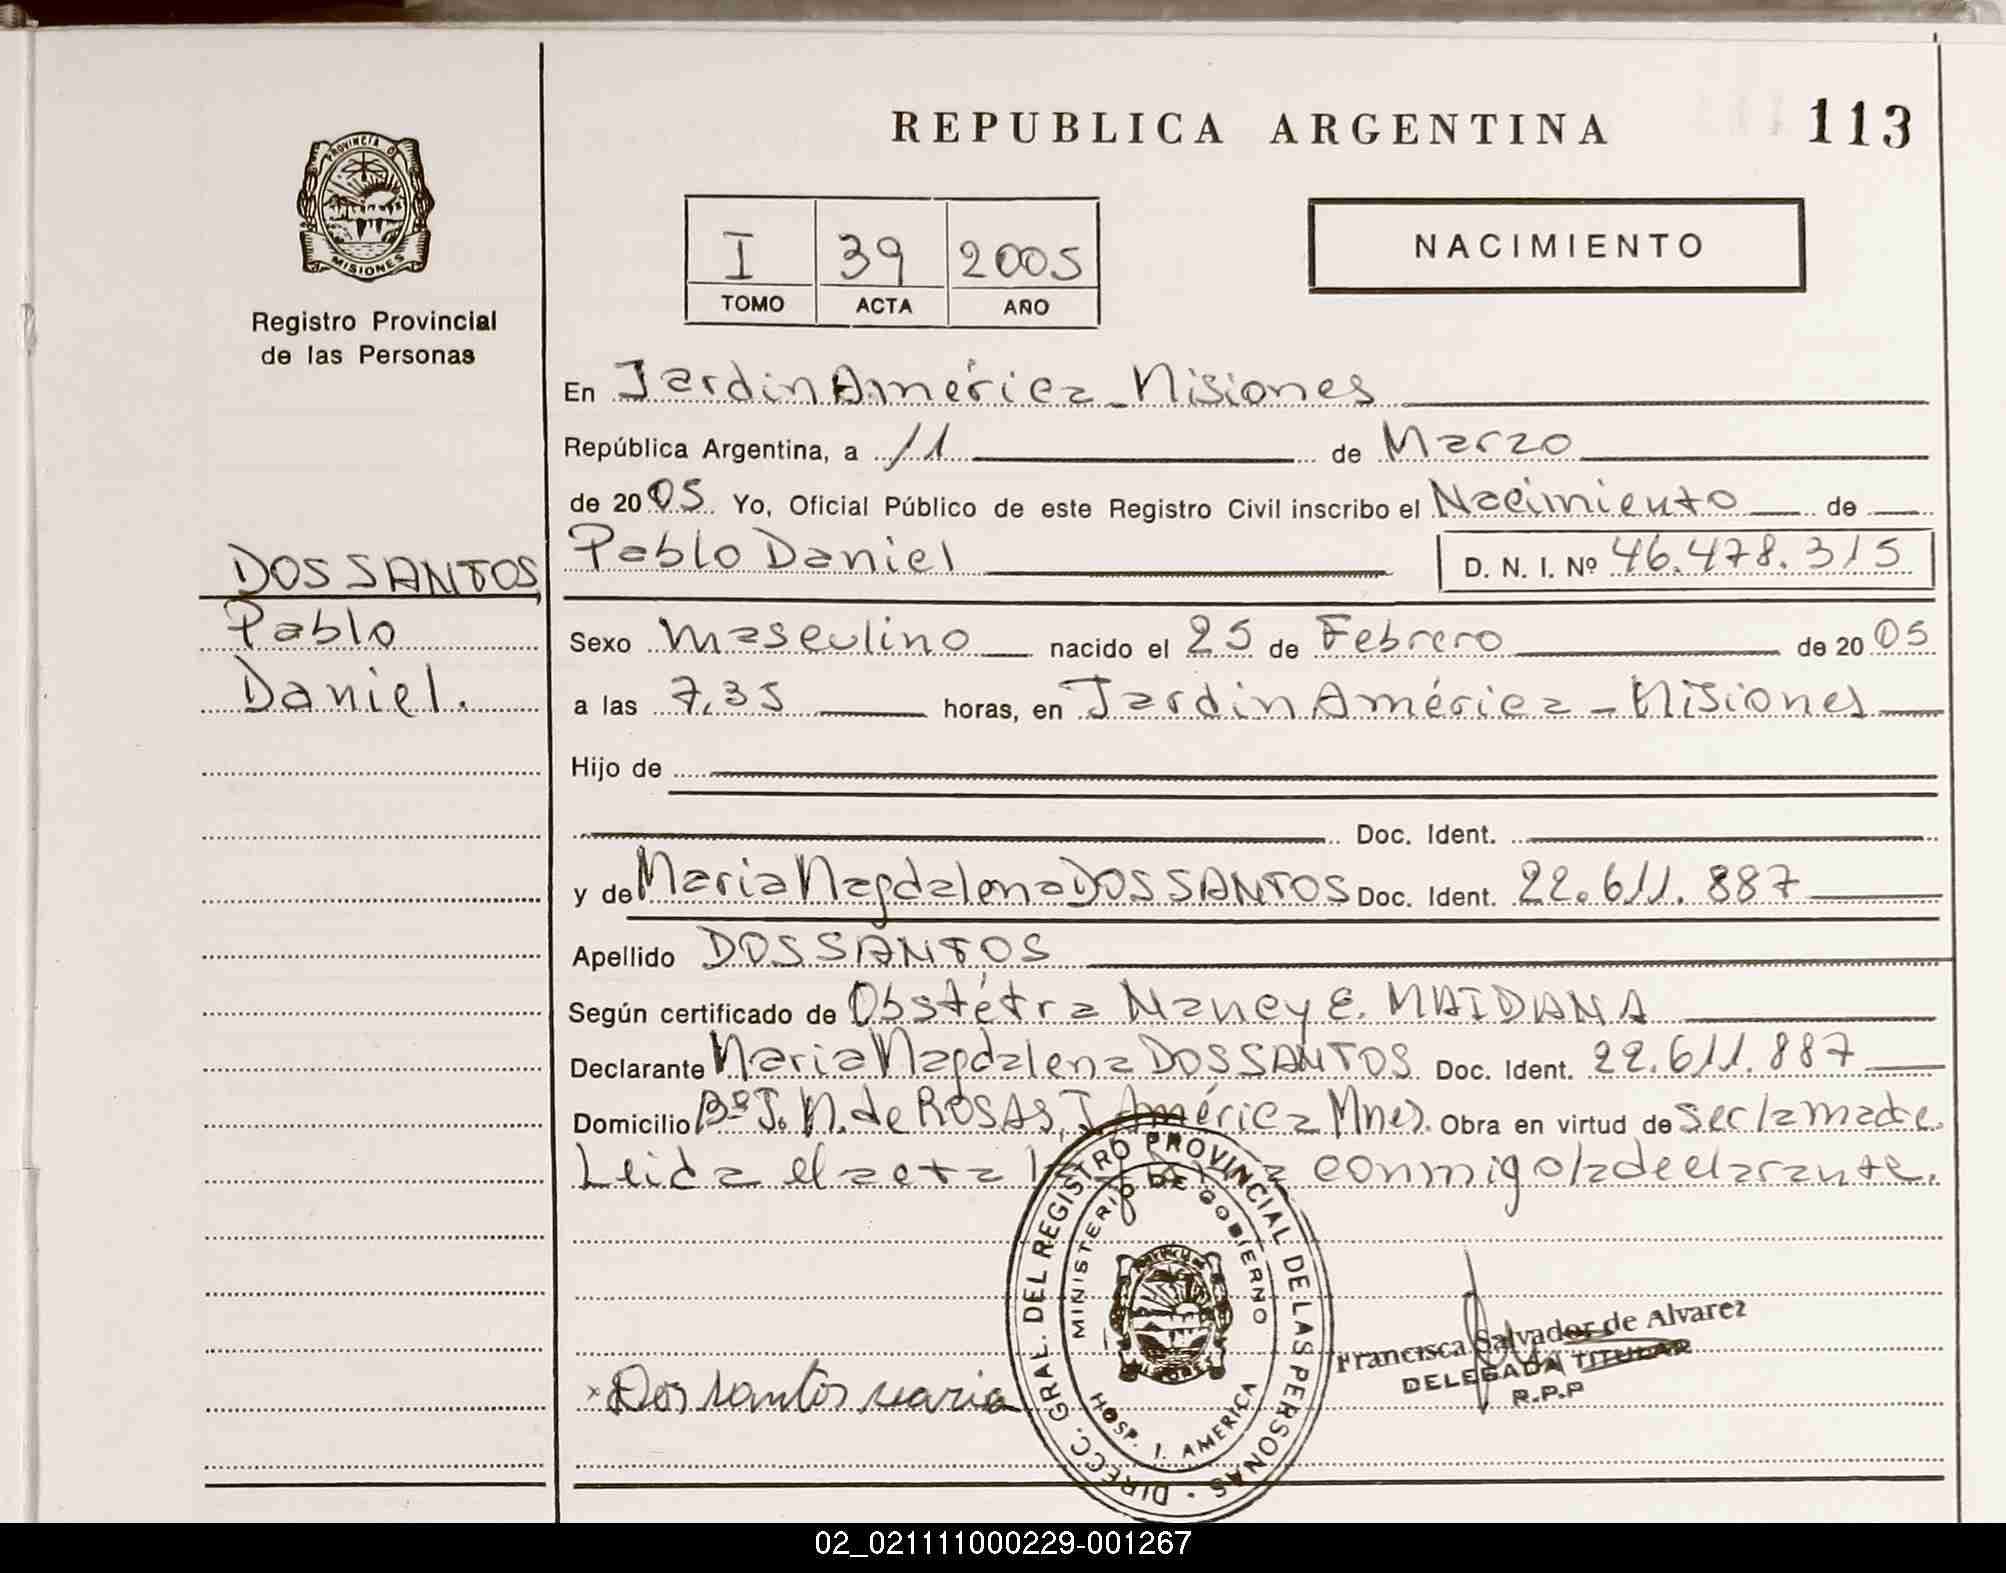 REPUBLICA ARGENTINA 113
PROVINCIA D
MISIONES
Registro Provincial
de las Personas
I 39 2005
TOMO ACTA AÑO
NACIMIENTO
En Jardin América - Misiones
República Argentina, a 11 de Marzo
de 20 05 Yo, Oficial Público de este Registro Civil inscribo el Nacimiento de
DOS SANTOS Pablo Daniel D. N. I. Nº 46.478.315
Pablo Sexo Masculino nacido el 25 de Febrero de 20 05
Daniel. a las 7,35 horas, en Jardin América - Misiones
Hijo de
Doc. Ident.
y de Maria Magdalena DOS SANTOS Doc. Ident. 22.611.887
Apellido DOS SANTOS
Según certificado de Obstétra Nancy E. MAIDANA
Declarante Maria Magdalena DOS SANTOS Doc. Ident. 22.611.887
Domicilio Bº J. M. de ROSAS, J. América Mnes. Obra en virtud de ser la madre.
Leida el acta conmigo la declarante.
DIRECC. GRAL. DEL REGISTRO PROVINCIAL DE LAS PERSONAS
MINISTERIO DE GOBIERNO
HOSP. J. AMERICA
Francisca Salvador de Alvarez
DELEGADA TITULAR
R.P.P
x Dos santos maria
02_021111000229-001267